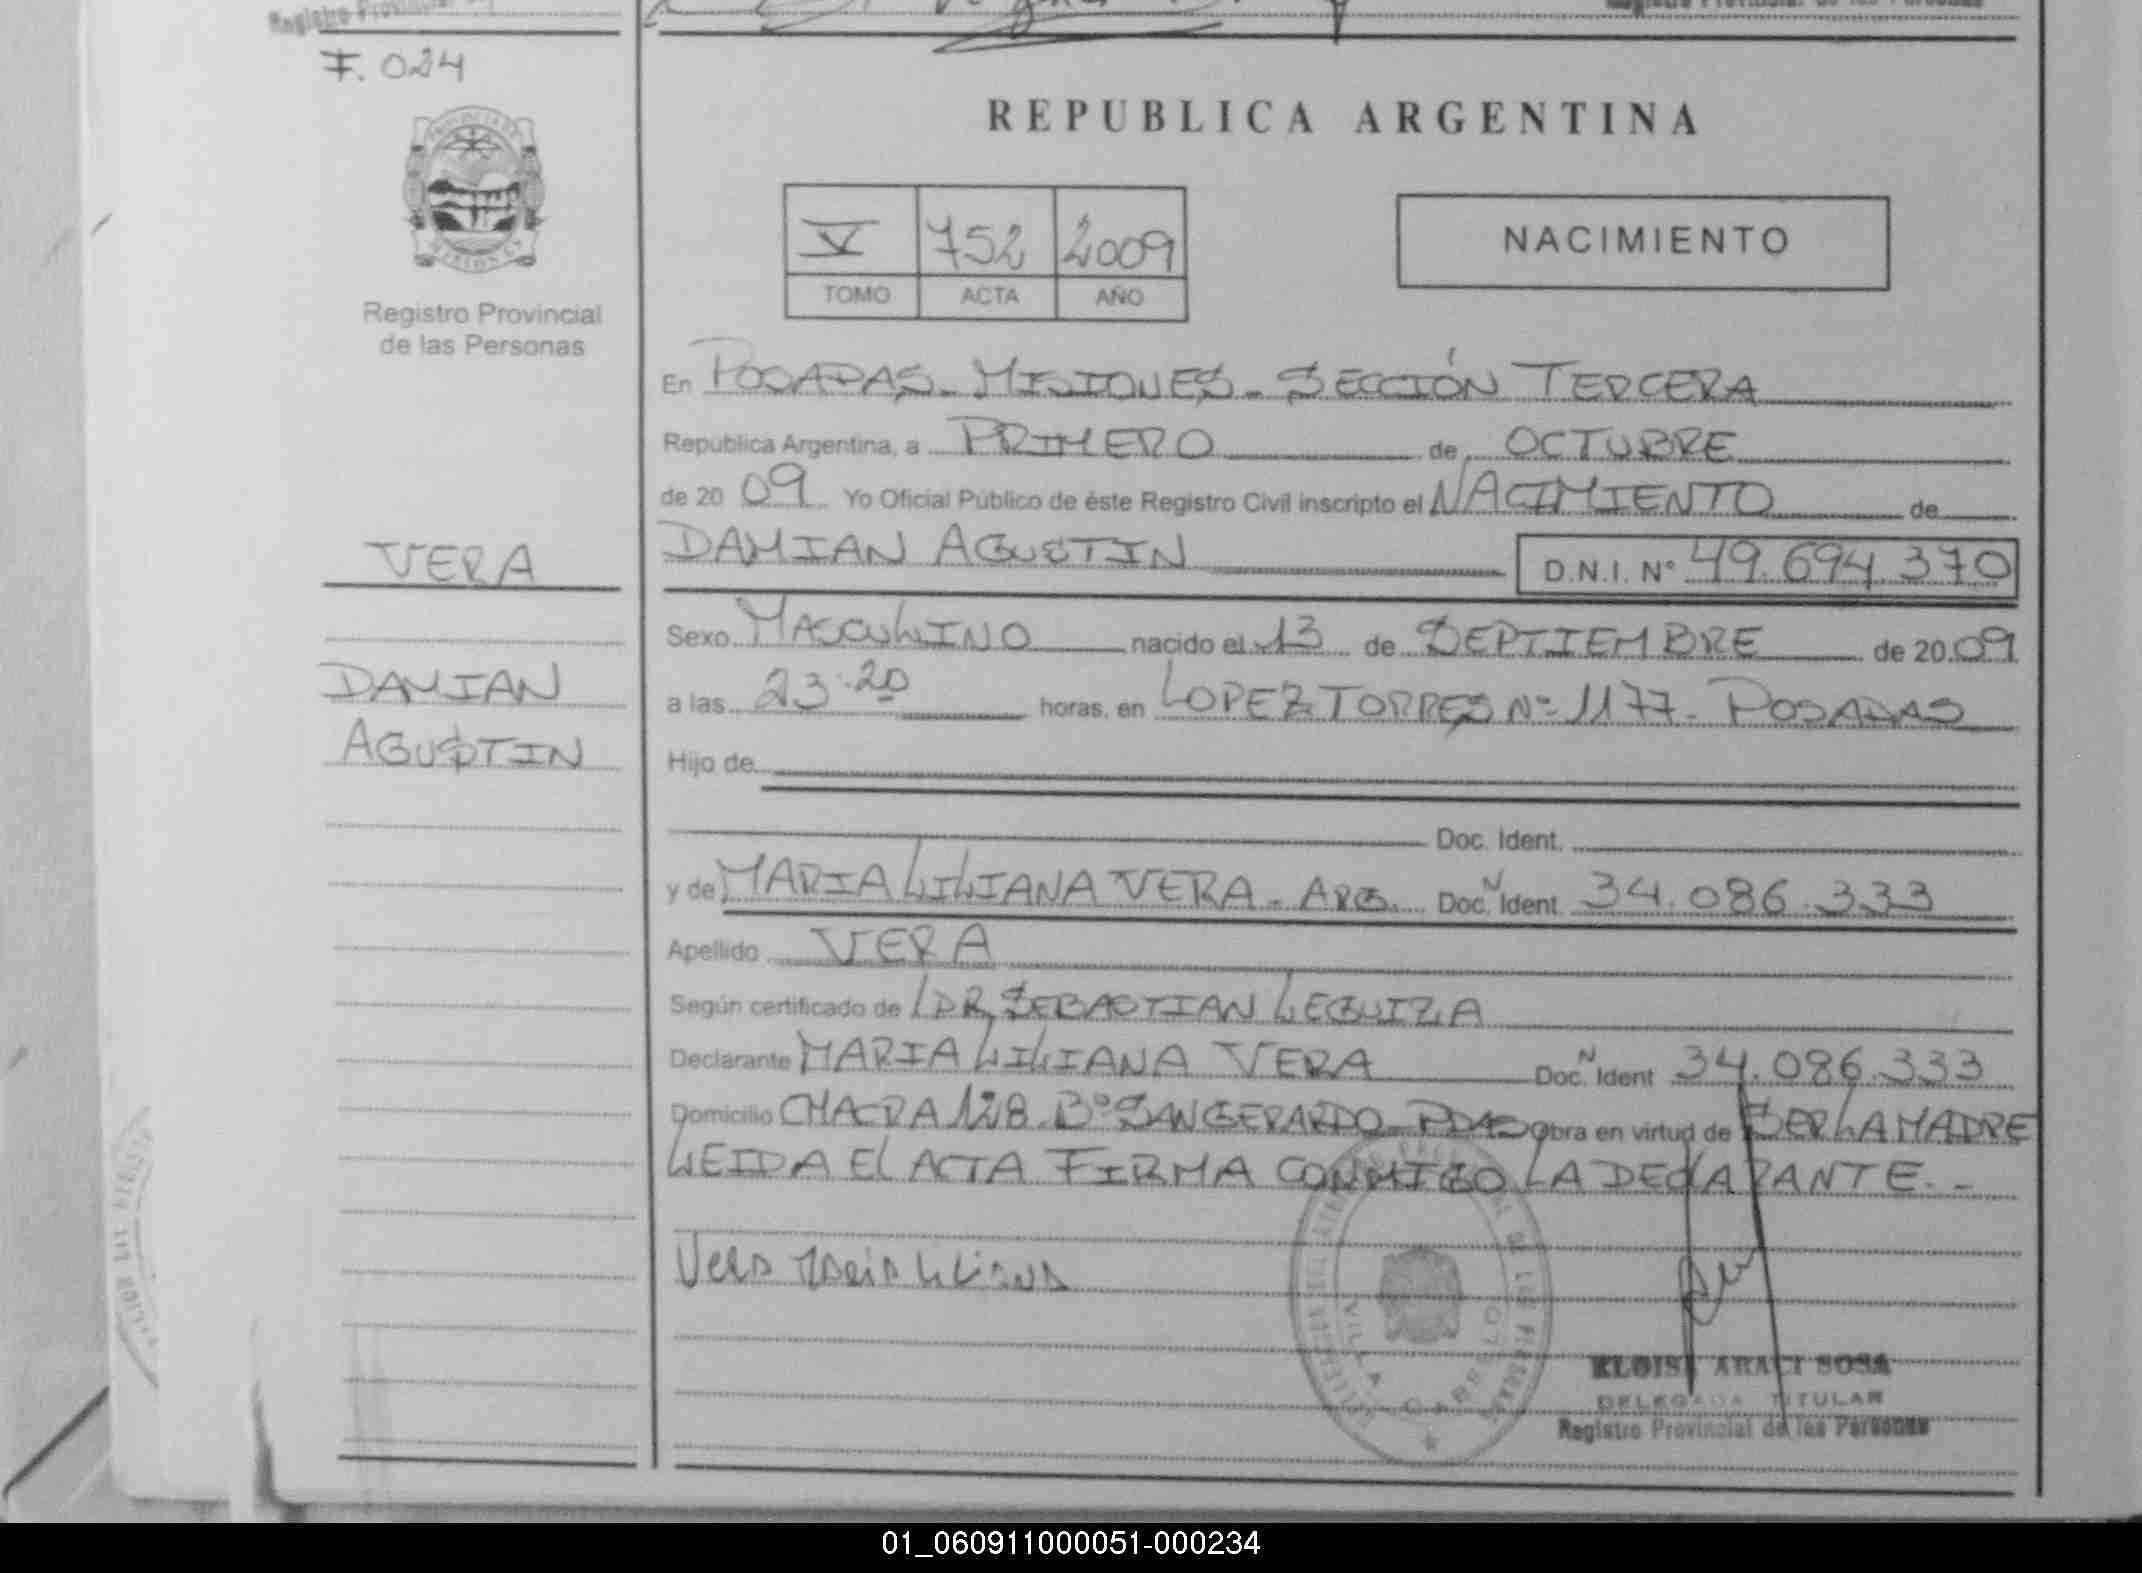 Registro Provincial
F. 024
REPUBLICA ARGENTINA
V 752 2009
TOMO ACTA AÑO
NACIMIENTO
Registro Provincial
de las Personas
En POSADAS - MISIONES - SECCIÓN TERCERA
República Argentina, a PRIMERO de OCTUBRE
de 20 09 Yo Oficial Público de éste Registro Civil inscripto el NACIMIENTO de
VERA
DAMIAN AGUSTIN D.N.I. Nº 49.694.370
Sexo MASCULINO nacido el 13 de SEPTIEMBRE de 20 09
DAMIAN
AGUSTIN
a las 23:20 horas, en LOPEZ TORRES Nº 1177 - POSADAS
Hijo de
Doc. Ident.
y de MARIA LILIANA VERA - ARG. Doc. N Ident 34.086.333
Apellido VERA
Según certificado de DR SEBASTIAN LEGUIZA
Declarante MARIA LILIANA VERA Doc. N Ident 34.086.333
Domicilio CHACRA 128 - Bº SAN GERARDO - PDAS Obra en virtud de SER LA MADRE
LEIDA EL ACTA FIRMA CONMIGO LA DECLARANTE. -
Vera Maria Liliana
VILLA CABELLO
ELOISA ARACI SOSA
DELEGADA TITULAR
Registro Provincial de las Personas
01_060911000051-000234